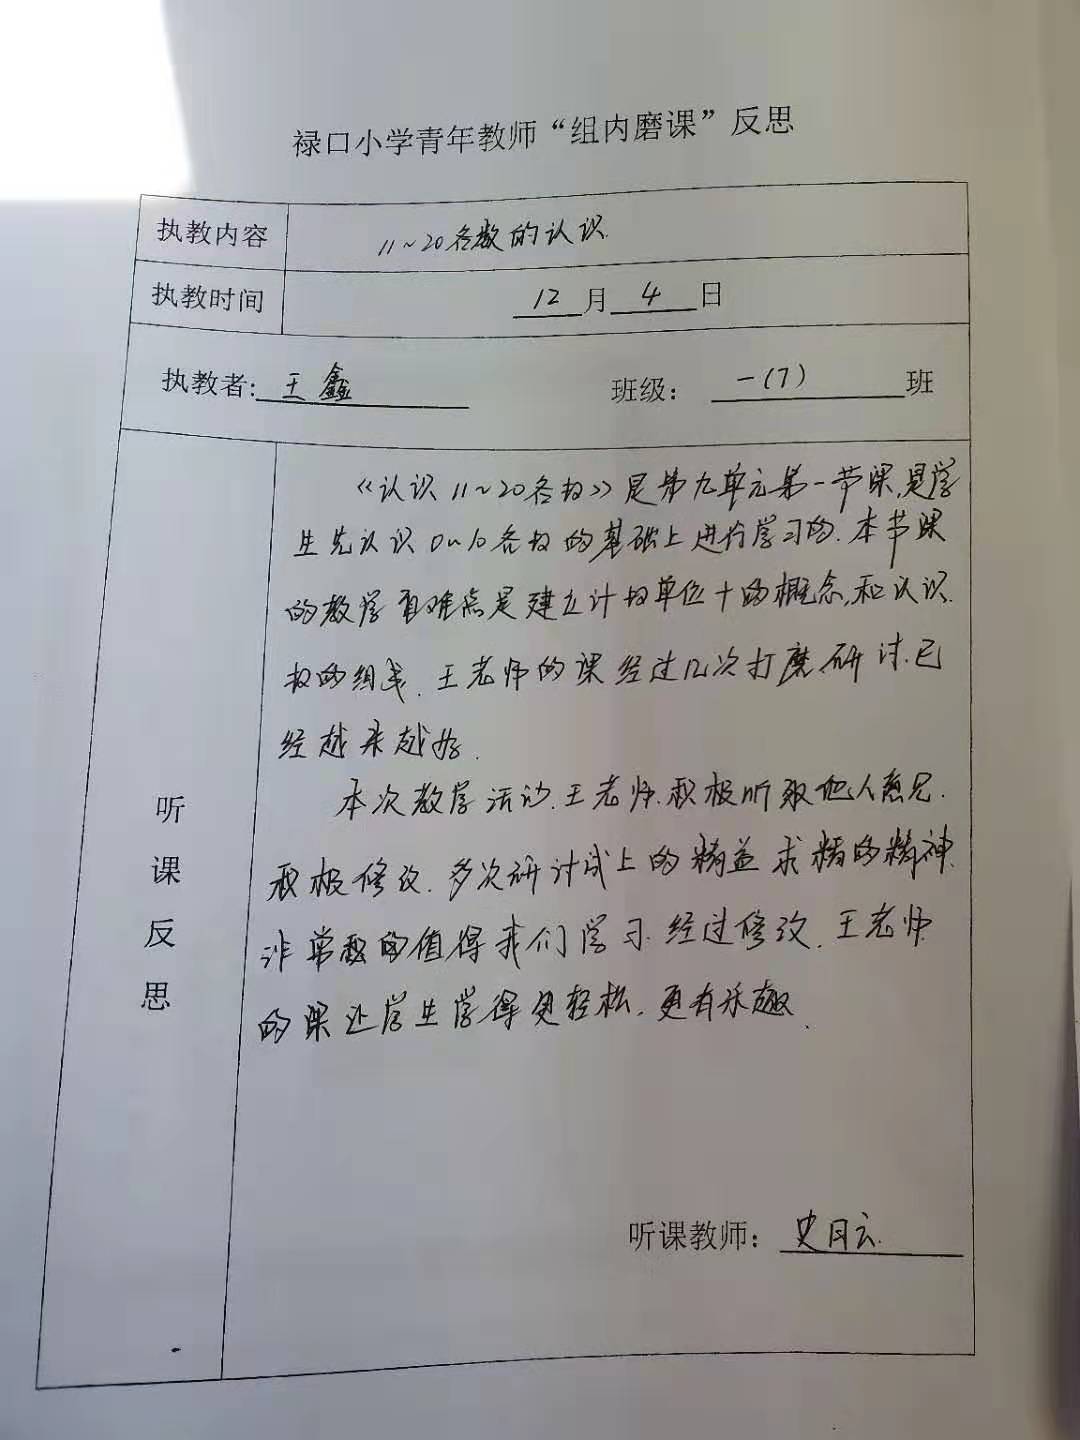 禄口小学青年教师“组内磨课”反思
执教内容 11~20各数的认识
执教时间 12月4日
执教者:王鑫 班级:一(7)班
《认识11~20各数》是第九单元第一节课,是学
生先认识0~10各数的基础上进行学习的.本节课
的教学重难点是建立计数单位十的概念,和认识
数的组成.王老师的课经过几次打磨研讨.已
经越来越好.
本次教学活动.王老师.积极听取他人意见.
积极修改.多次研讨试上的精益求精的精神
非常的值得我们学习.经过修改.王老师
的课让学生学得更轻松.更有乐趣.
听课反思
听课教师:史月云